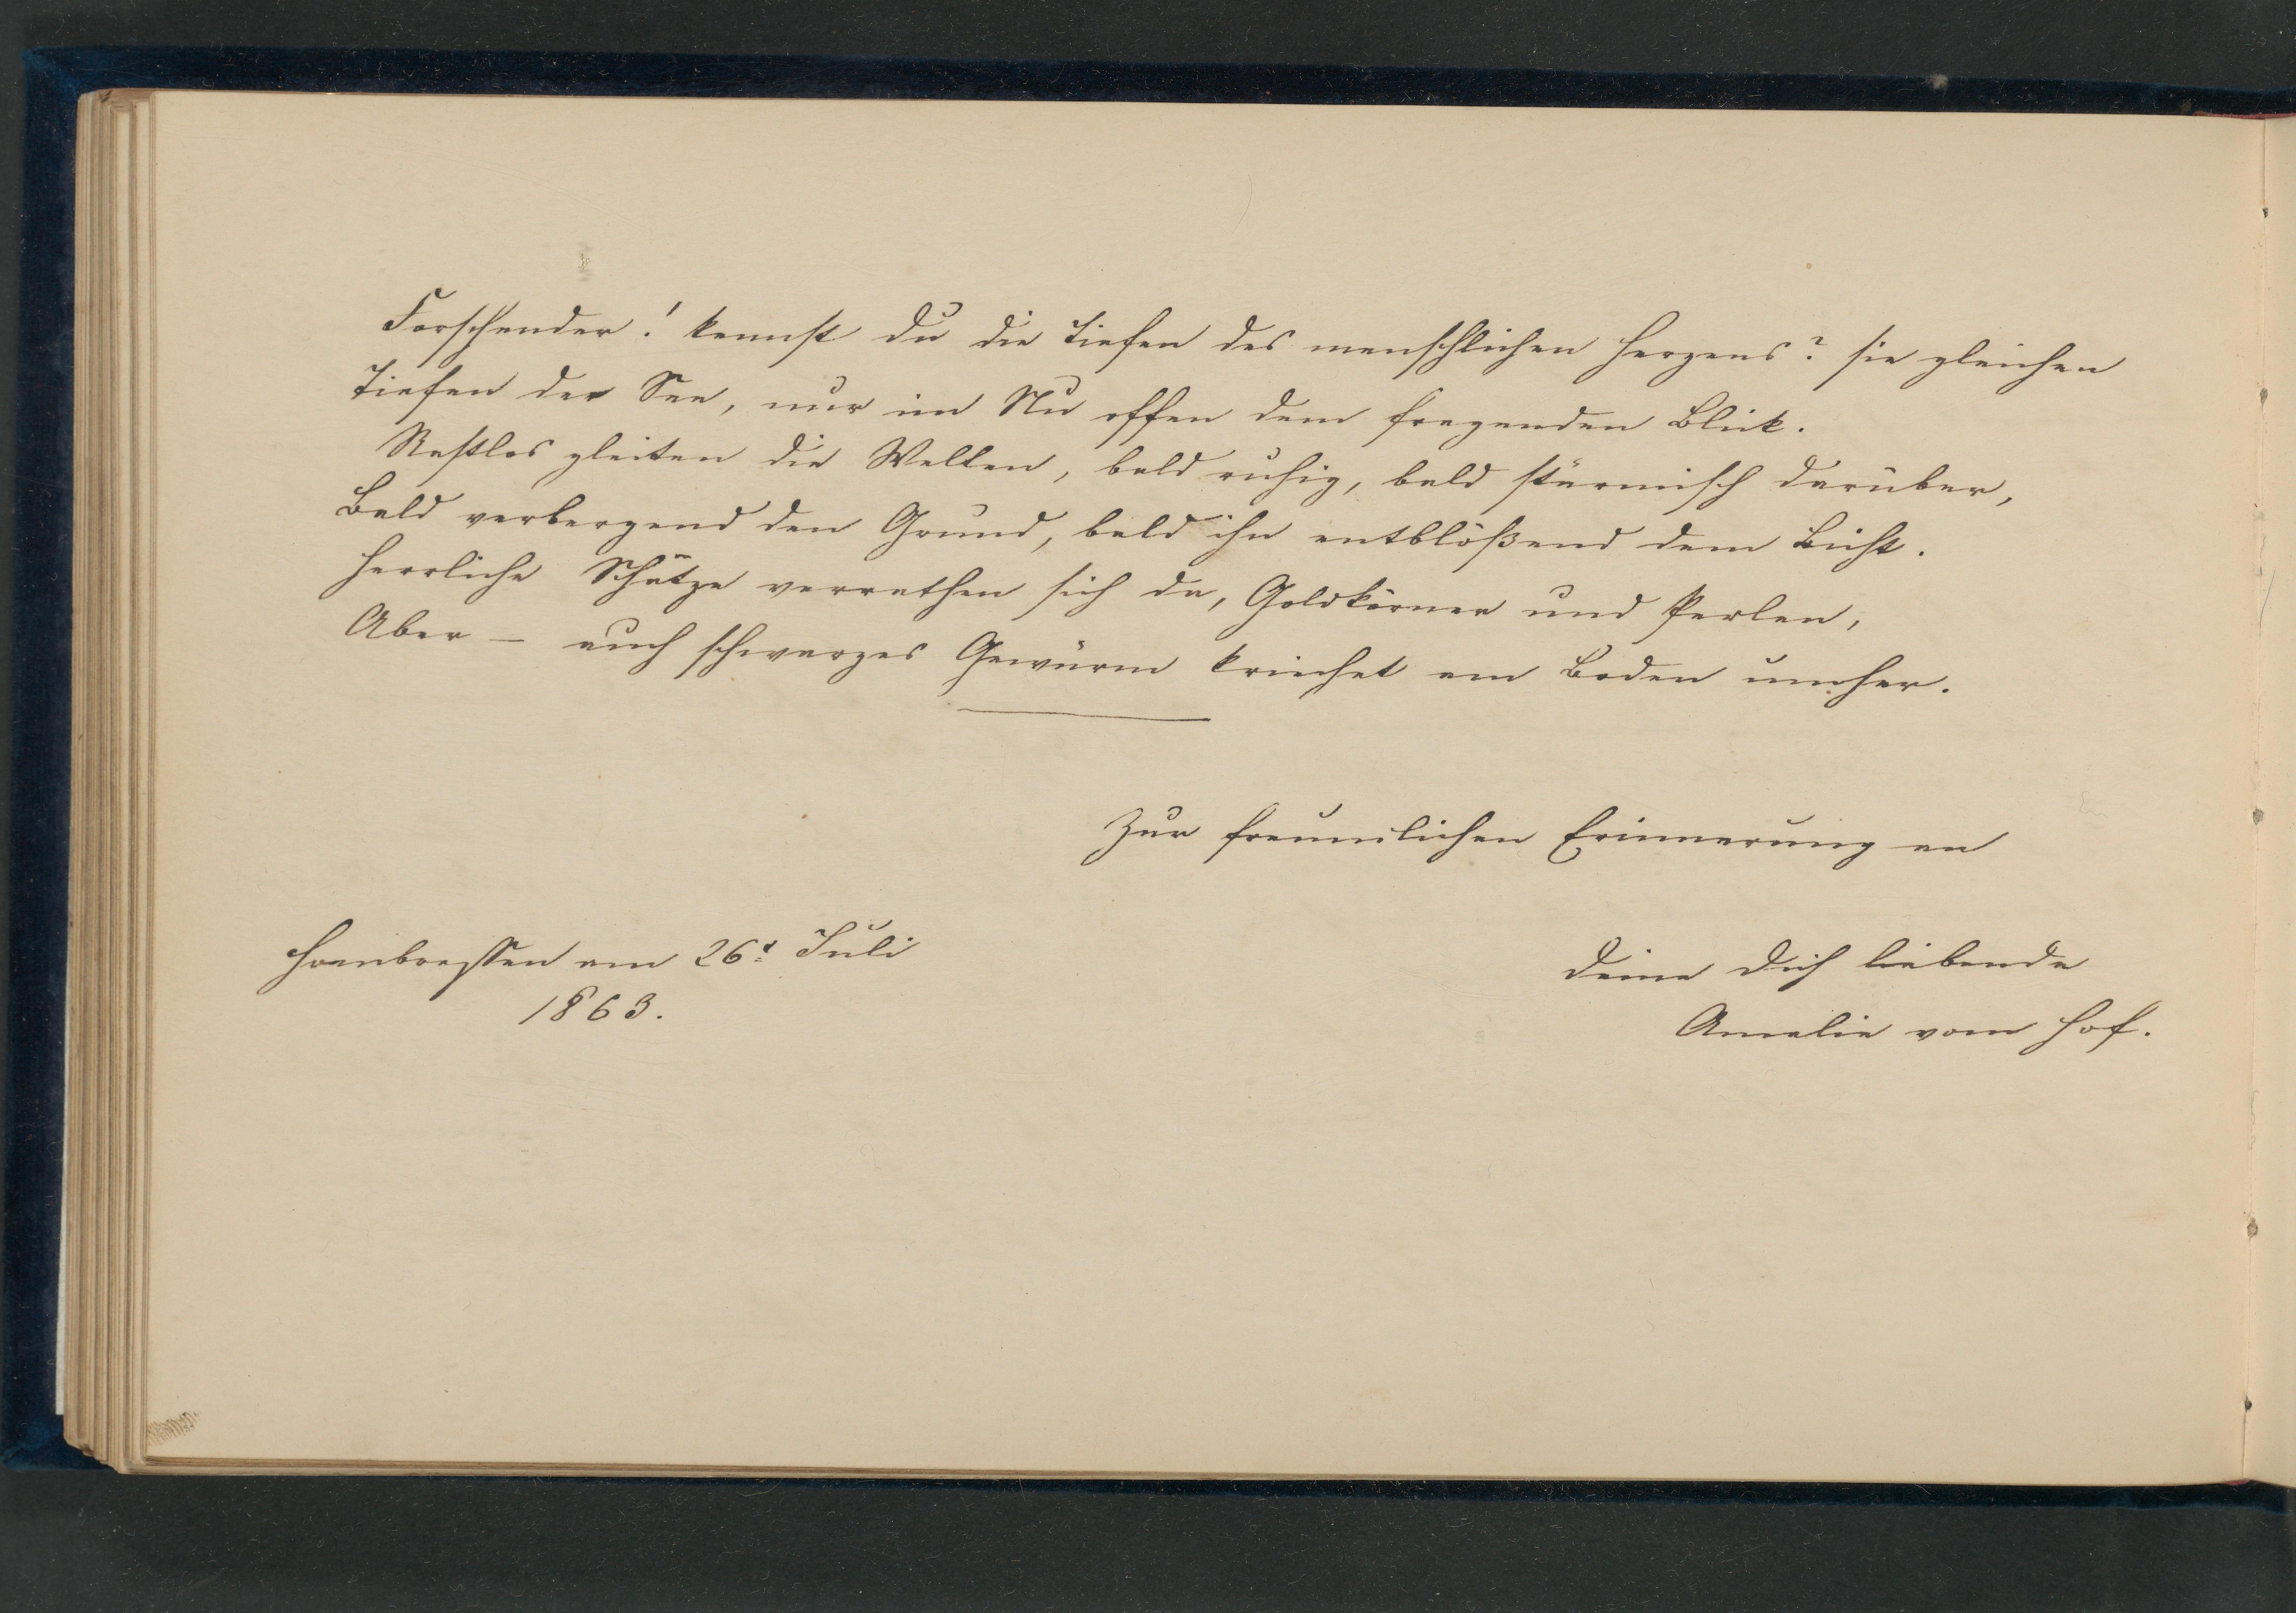 Forschender! kennst du die Tiefen des menschlichen Herzens? sie gleichen
Tiefen der See, nur im Nu offen dem fragenden Blick.
Rastlos gleiten die Wellen, bald ruhig, bald stürmisch darüber,
Bald verbergend den Grund, bald ihn entblößend dem Licht.
Herrliche Schätze verrathen sich da, Goldkörner und Perlen,
Aber – auch schwarzes Gewürm kriechet am Boden umher.
Zur freundlichen Erinnerung an
Hombressen am 26t Juli
1863.
Deine Dich liebende
Amalie vom Hof.